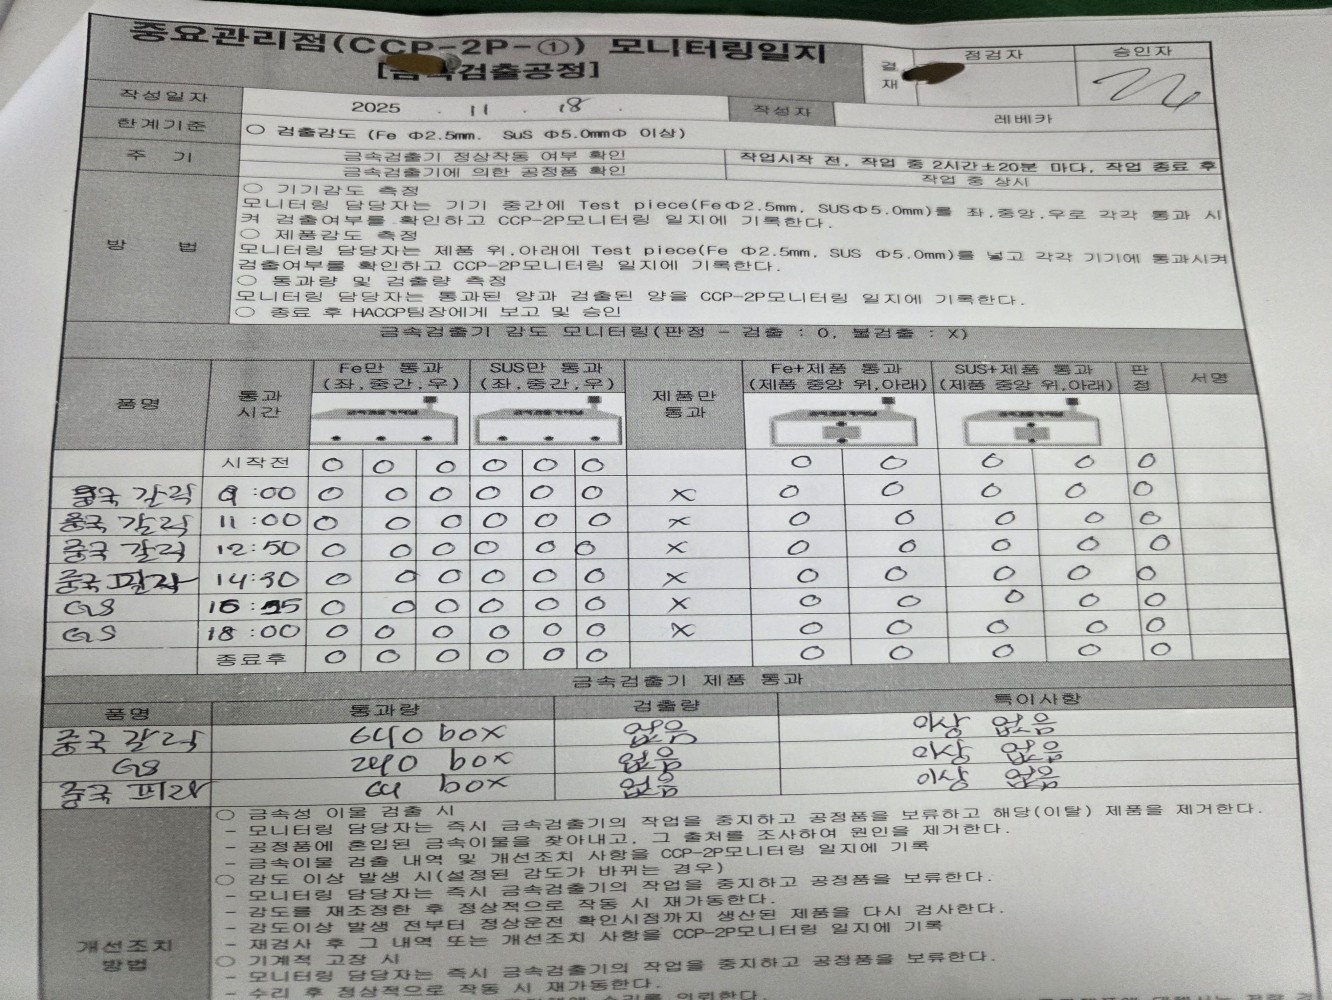 중요관리점(CCP-2P-①) 모니터링일지
[금속검출공정]
결재 점검자 승인자
작성일자 2025 . 11 . 18 . 작성자 레베카
한계기준 ○ 검출감도 (Fe Φ2.5mm. SuS Φ5.0mmΦ 이상)
주 기 금속검출기 정상작동 여부 확인 작업시작 전, 작업 중 2시간±20분 마다, 작업 종료 후
금속검출기에 의한 공정품 확인 작업 중 상시
방 법
○ 기기감도 측정
모니터링 담당자는 기기 중간에 Test piece(FeΦ2.5mm, SUSΦ5.0mm)를 좌.중앙.우로 각각 통과 시
켜 검출여부를 확인하고 CCP-2P모니터링 일지에 기록한다.
○ 제품감도 측정
모니터링 담당자는 제품 위,아래에 Test piece(Fe Φ2.5mm, SUS Φ5.0mm)를 넣고 각각 기기에 통과시켜
검출여부를 확인하고 CCP-2P모니터링 일지에 기록한다.
○ 통과량 및 검출량 측정
모니터링 담당자는 통과된 양과 검출된 양을 CCP-2P모니터링 일지에 기록한다.
○ 종료 후 HACCP팀장에게 보고 및 승인
금속검출기 감도 모니터링(판정 - 검출 : O, 불검출 : X)
품명 통과시간 Fe만 통과 (좌.중간.우) SUS만 통과 (좌.중간.우) 제품만 통과 Fe+제품 통과 (제품 중앙 위,아래) SUS+제품 통과 (제품 중앙 위,아래) 판정 서명
시작전 O O O O O O O O O O O
중국 갈릭 9:00 O O O O O O X O O O O O
중국 갈릭 11:00 O O O O O O X O O O O O
중국 갈릭 12:50 O O O O O O X O O O O O
중국 피자 14:30 O O O O O O X O O O O O
GS O O O O O O X O O O O O
GS 18:00 O O O O O O X O O O O O
종료후 O O O O O O O O O O O
금속검출기 제품 통과
품명 통과량 검출량 특이사항
중국 갈릭 640 box 없음 이상 없음
GS 240 box 없음 이상 없음
중국 피자 64 box 없음 이상 없음
개선조치 방법
○ 금속성 이물 검출 시
- 모니터링 담당자는 즉시 금속검출기의 작업을 중지하고 공정품을 보류하고 해당(이탈) 제품을 제거한다.
- 공정품에 혼입된 금속이물을 찾아내고, 그 출처를 조사하여 원인을 제거한다.
- 금속이물 검출 내역 및 개선조치 사항을 CCP-2P모니터링 일지에 기록
○ 감도 이상 발생 시(설정된 감도가 바뀌는 경우)
- 모니터링 담당자는 즉시 금속검출기의 작업을 중지하고 공정품을 보류한다.
- 감도를 재조정한 후 정상적으로 작동 시 재가동한다.
- 감도이상 발생 전부터 정상운전 확인시점까지 생산된 제품을 다시 검사한다.
- 재검사 후 그 내역 또는 개선조치 사항을 CCP-2P모니터링 일지에 기록
○ 기계적 고장 시
- 모니터링 담당자는 즉시 금속검출기의 작업을 중지하고 공정품을 보류한다.
- 수리 후 정상적으로 작동 시 재가동한다.